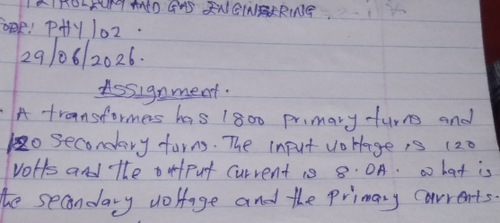 PETROLEUM AND GAS ENGINEERING.
CODE: PHY 102.
29/06/2026.
Assignment.
A transformers has 1800 primary turns and
120 secondary turns. The input voltage is 120
volts and the output current is 8.0A. what is
the secondary voltage and the primary currents